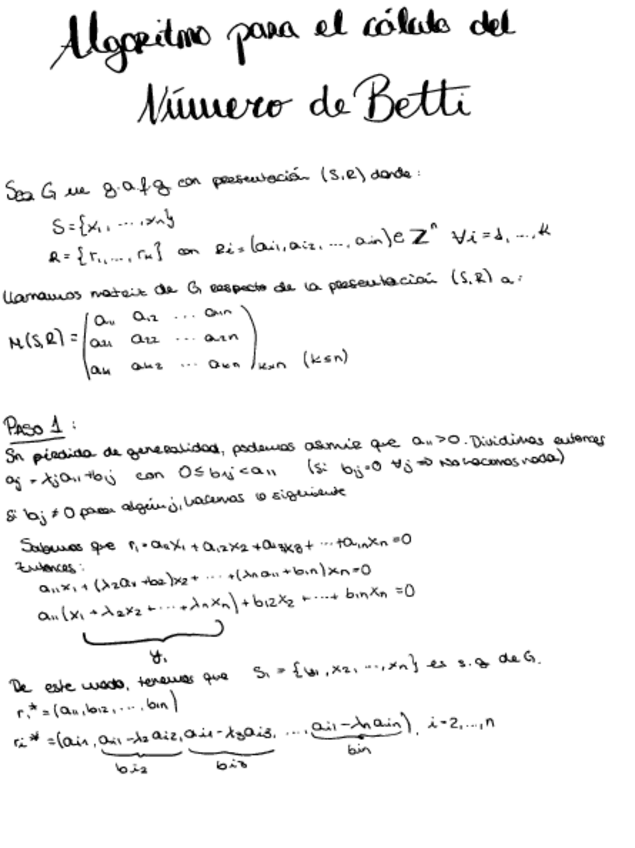 Algoritmo para el cálculo del
Número de Betti
Sea G un g.a.f.g con presentación (S,R) donde:
S = {x₁, ..., xₙ}
R = {r₁, ..., rₖ} con Ri = (ai1, ai2, ..., ain) ∈ ℤⁿ ∀i = 1, ..., k
Llamamos matriz de G respecto de la presentación (S,R) a:
M(S,R) = ( a₁₁ a₁₂ ... a₁ₙ
a₂₁ a₂₂ ... a₂ₙ
aₖ₁ aₖ₂ ... aₖₙ )ₖₓₙ (k≤n)
PASO 1:
Sn pérdida de generalidad, podemos asumir que a₁₁>0. Dividimos entonces
aj = λj a₁₁ + b₁j con 0 ≤ b₁j < a₁₁ (Si bj=0 ∀j ⇒ No hacemos nada)
Si bj ≠ 0 para algún j, hacemos lo siguiente
Sabemos que r₁ = a₁₁x₁ + a₁₂x₂ + a₁₃x₃ + ... + a₁ₙxₙ = 0
Entonces:
a₁₁x₁ + (λ₂a₁₁ + b₂)x₂ + ... + (λₙa₁₁ + b₁ₙ)xₙ = 0
a₁₁(x₁ + λ₂x₂ + ... + λₙxₙ) + b₁₂x₂ + ... + b₁ₙxₙ = 0
y₁
De este modo, tenemos que S₁ = {y₁, x₂, ..., xₙ} es s.g de G.
r₁* = (a₁₁, b₁₂, ..., b₁ₙ)
ri* = (ai1, ai1 - λ₂ai2, ai1 - λ₃ai3, ..., ai1 - λₙain), i = 2, ..., n
bi2 bi3 bin